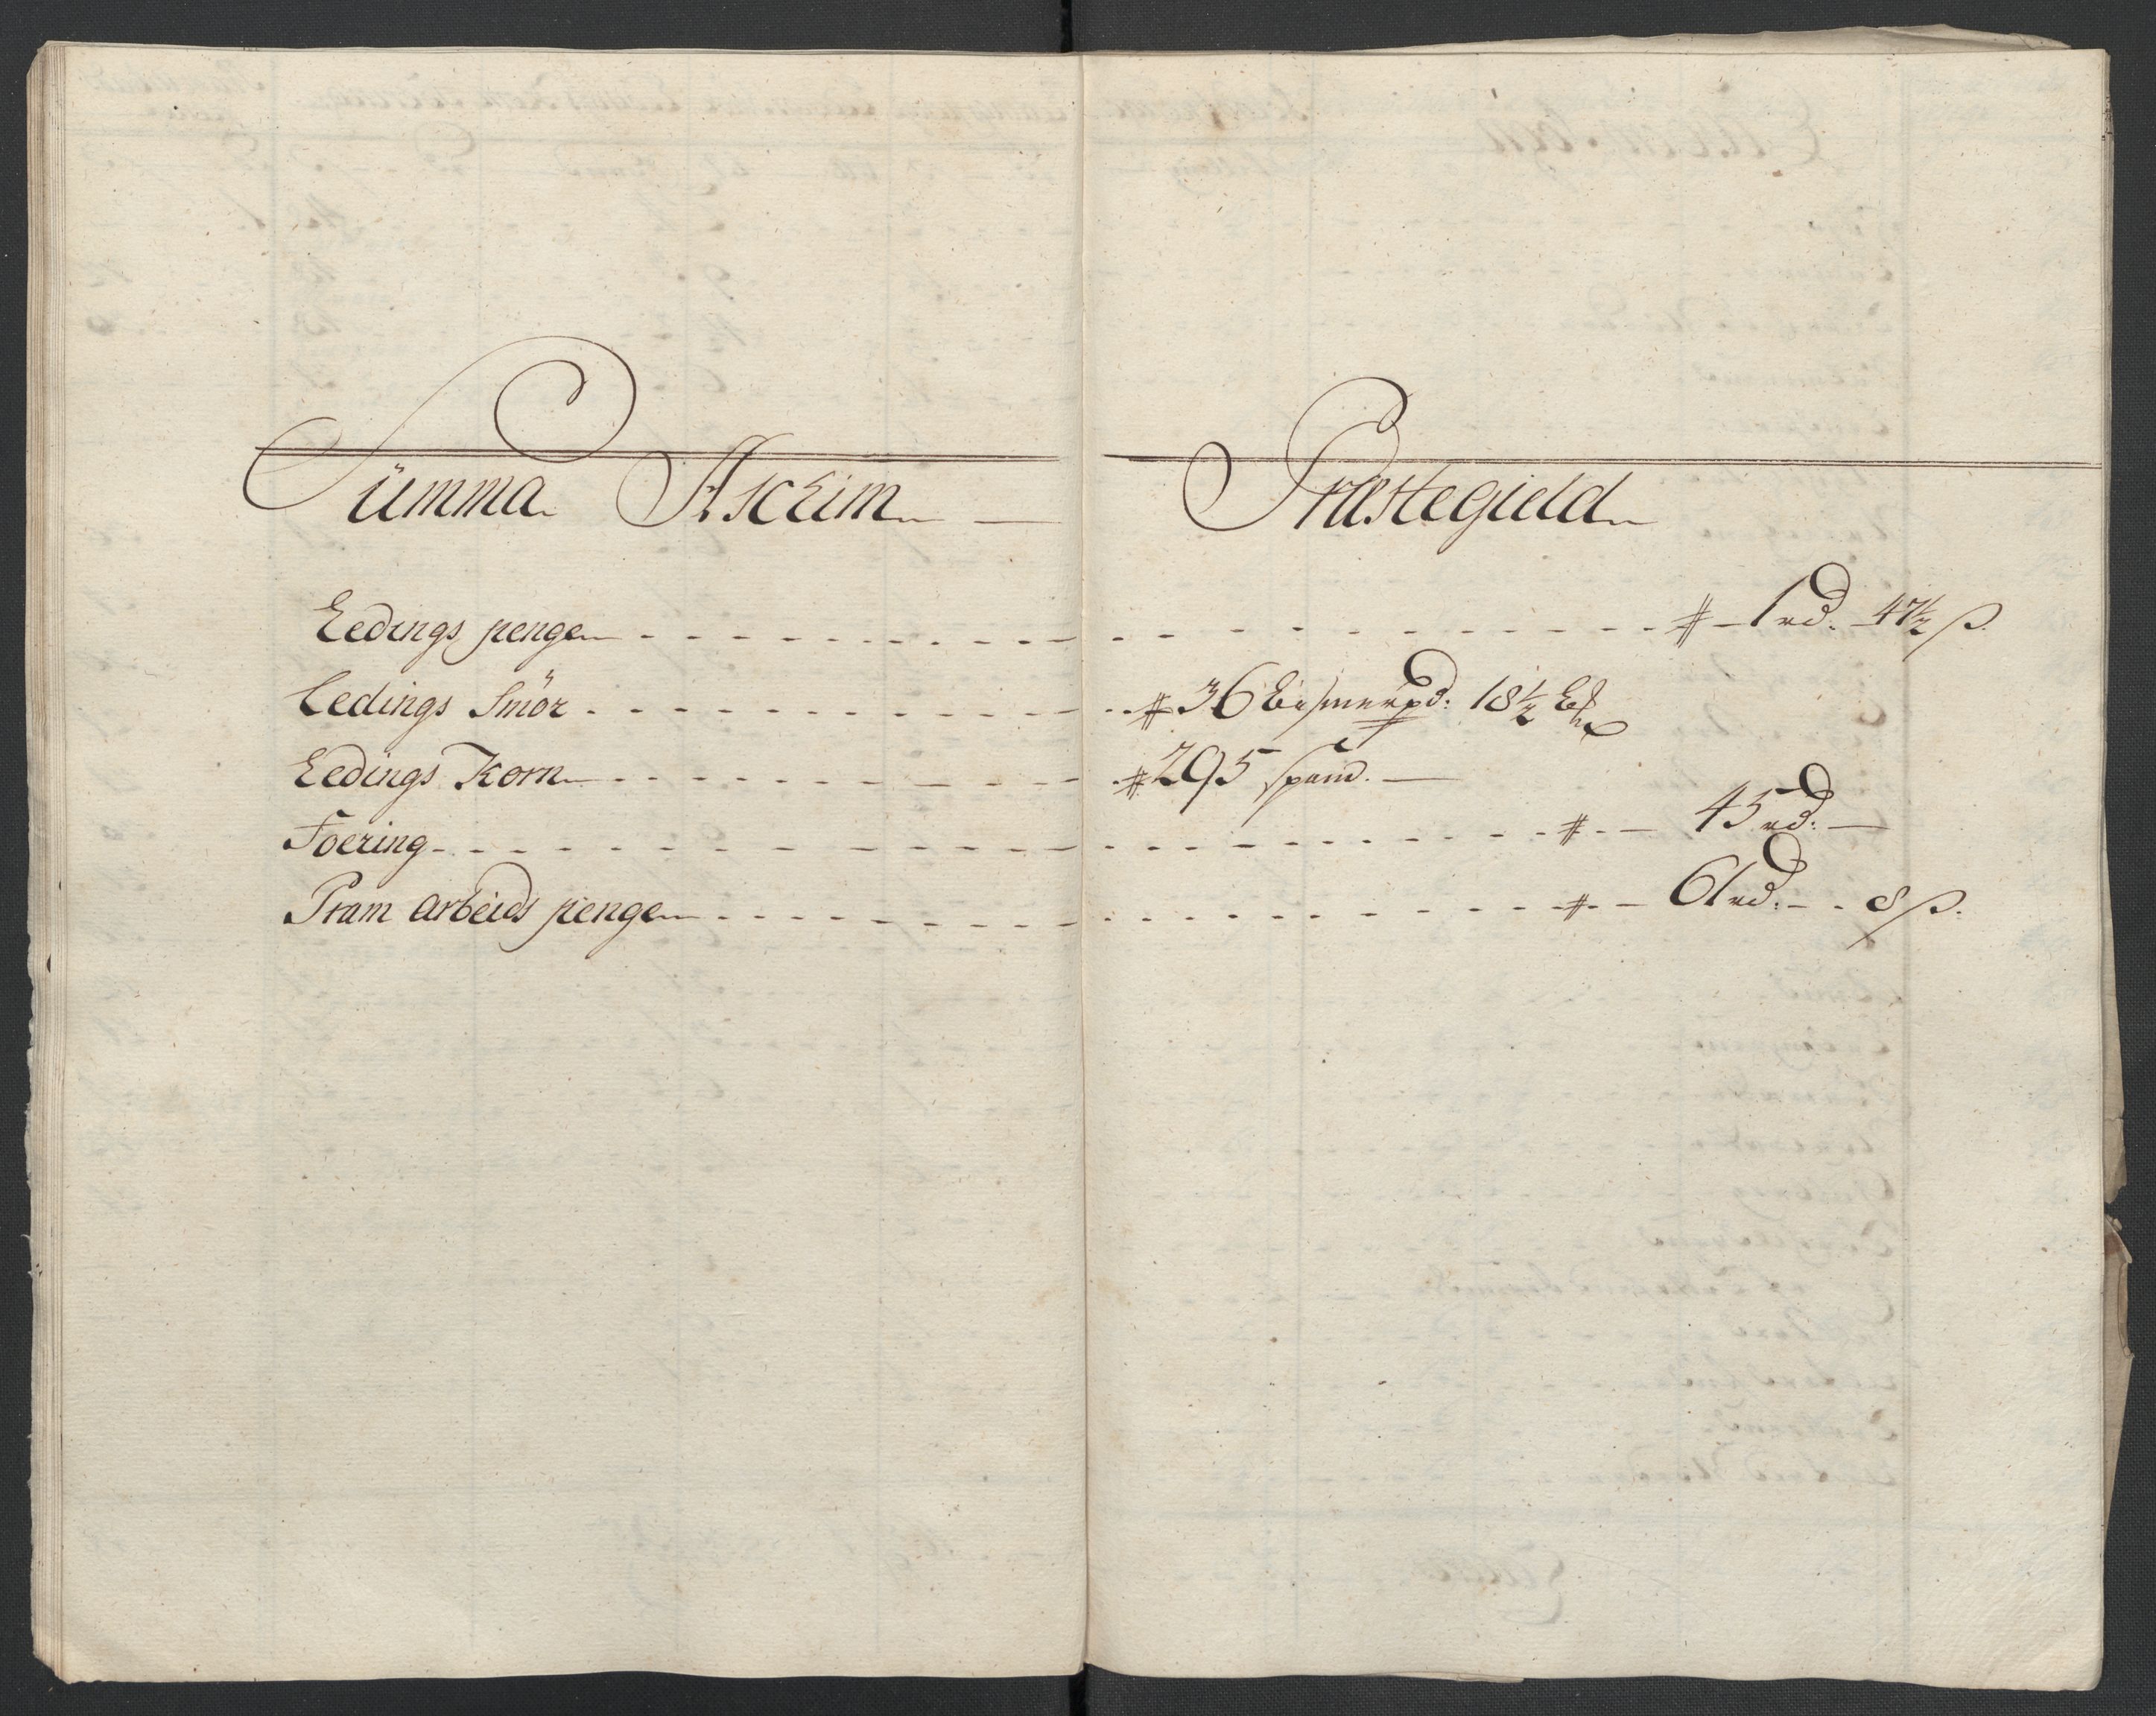 Summa Ascheim — Præstegield
Leedings penge - - - # - 1 rd. 47½ s.
Leedings Smör - - - # 36 Bismerpd: 18½ Lb
Leedings Korn - - - # 295 spand. —
Foering - - - # - — 45 rd: —
Pram arbeids penge - - - # - — 61 rd: - - 8 s.